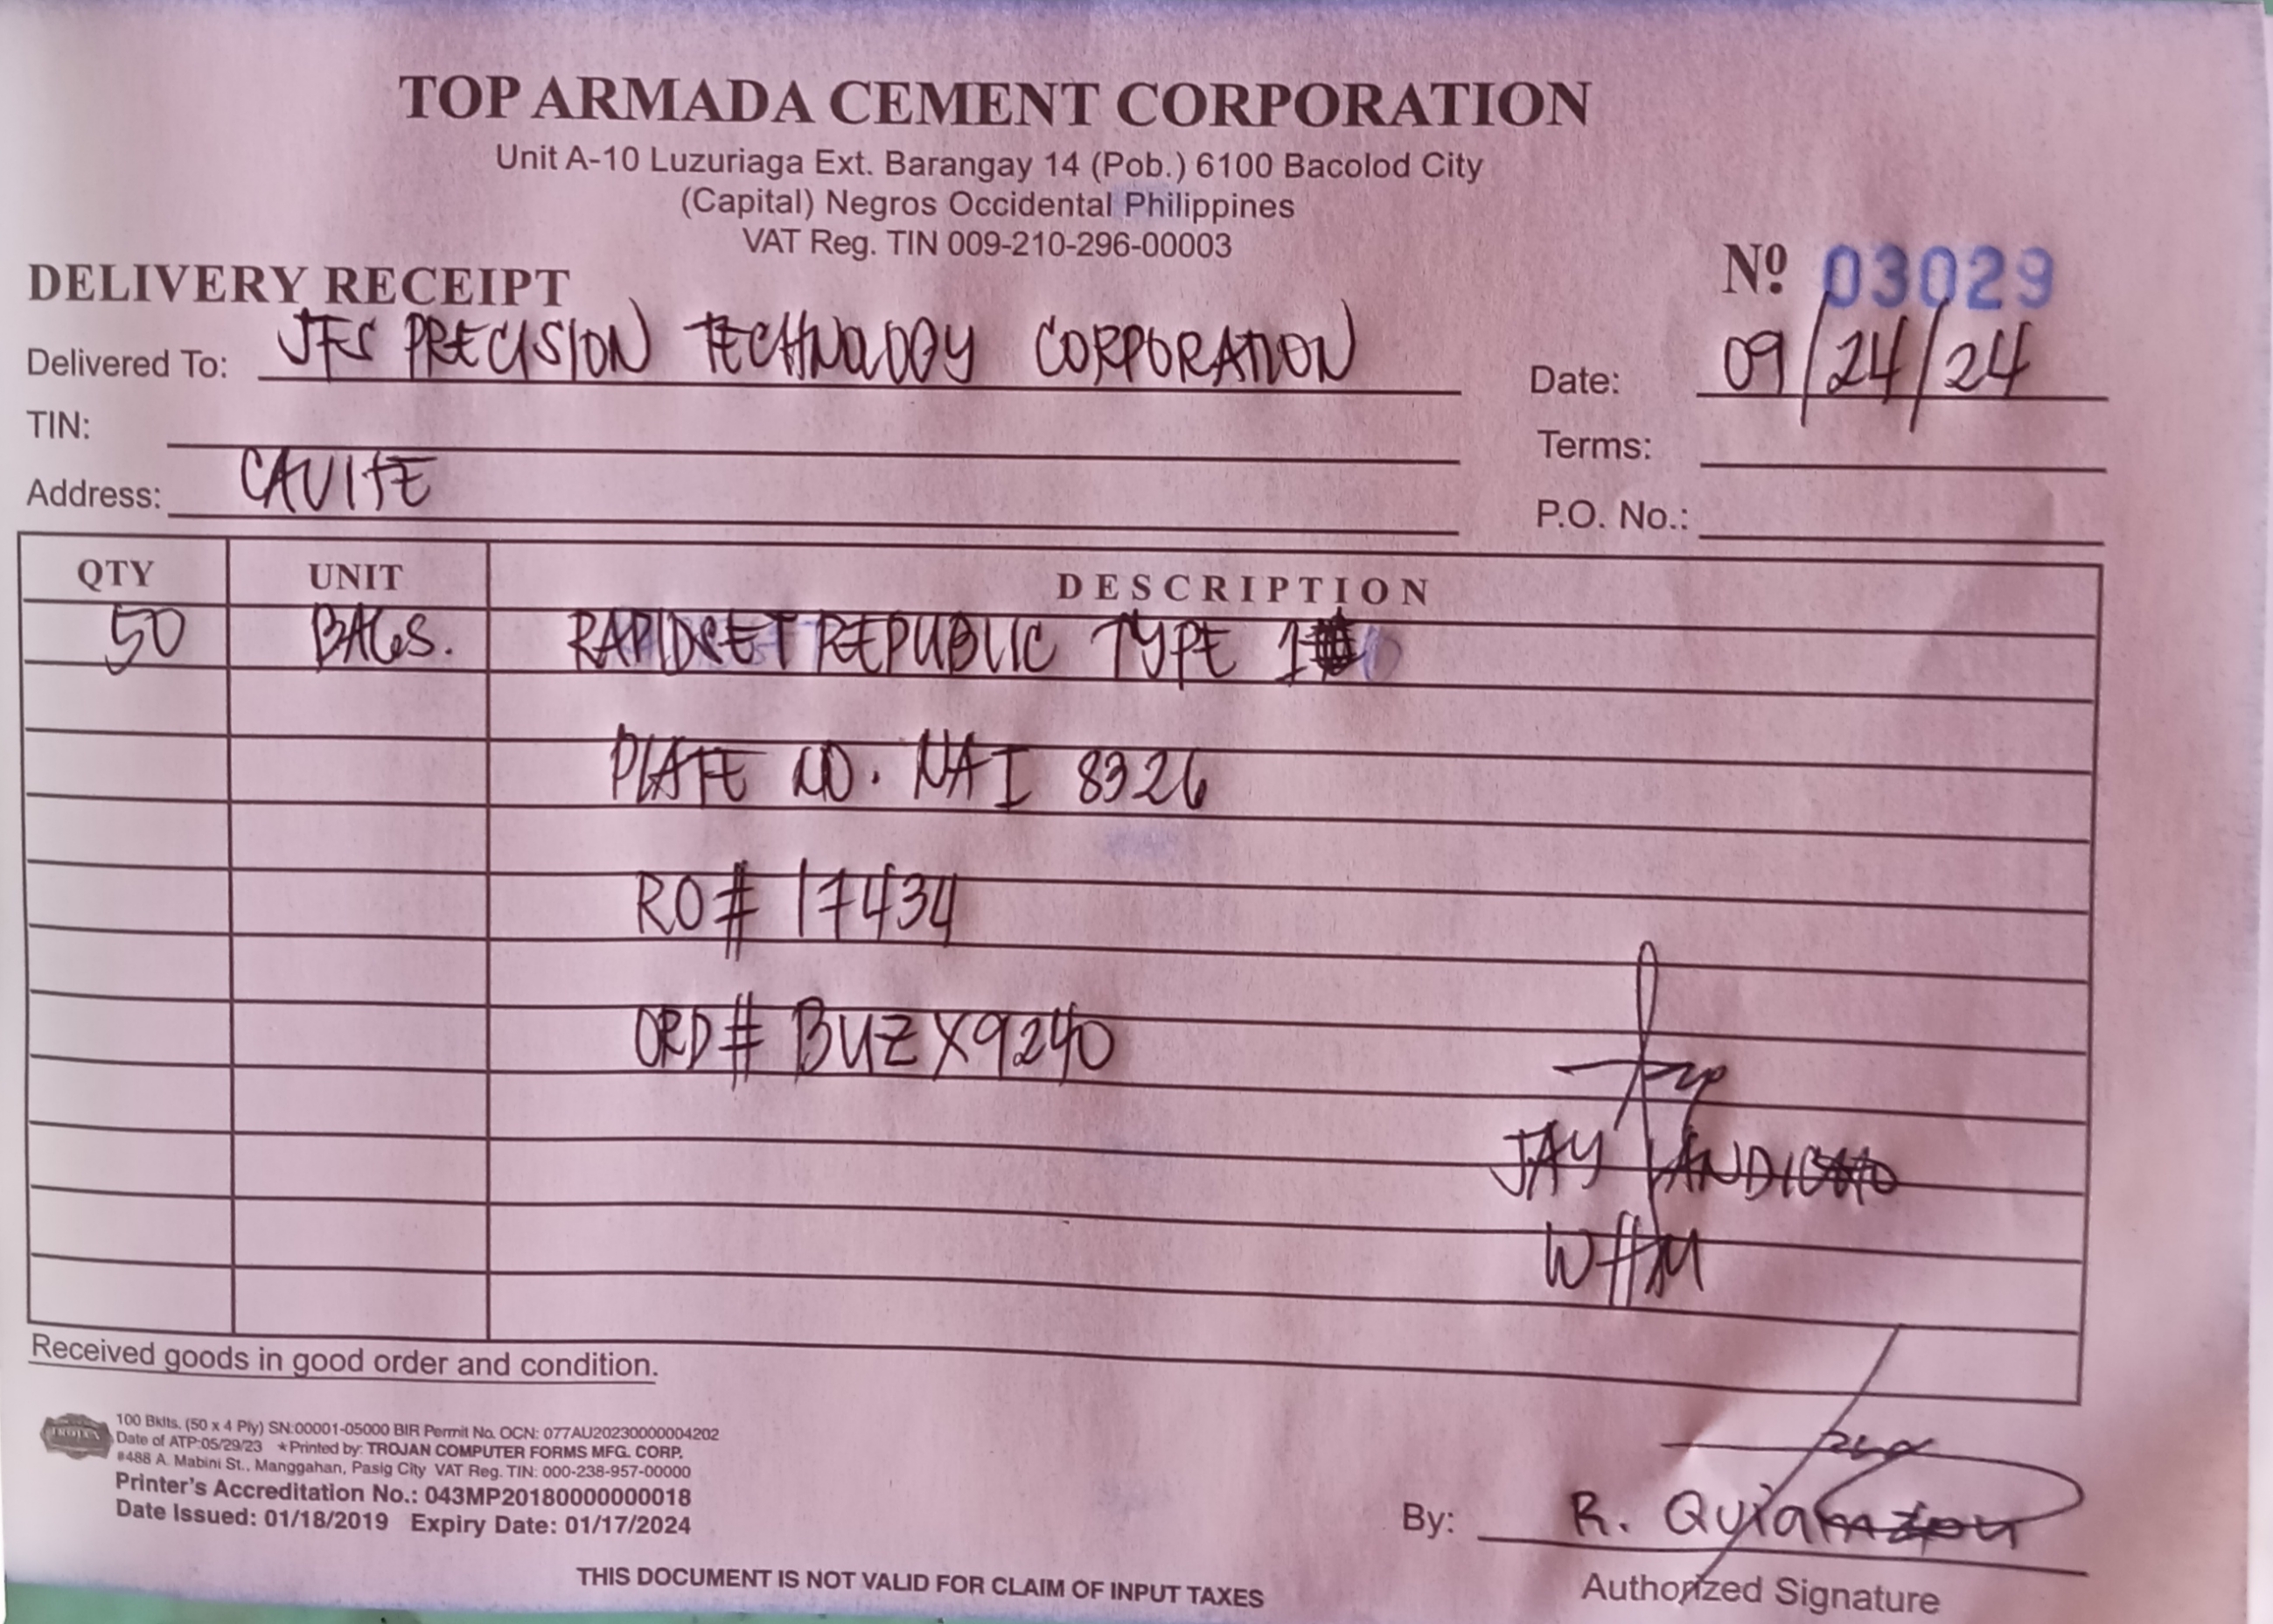 TOP ARMADA CEMENT CORPORATION
Unit A-10 Luzuriaga Ext. Barangay 14 (Pob.) 6100 Bacolod City
(Capital) Negros Occidental Philippines
VAT Reg. TIN 009-210-296-00003
DELIVERY RECEIPT
Nº 03029
Delivered To: JFS PRECISION TECHNOLOGY CORPORATION
Date: 09/24/24
TIN:
Terms:
Address: CAVITE
P.O. No.:
QTY UNIT DESCRIPTION
50 BAGS. RAPIDSET REPUBLIC TYPE 1
PLATE NO. NAI 8326
RO# 17434
ORD# BUZX9240
JAY
WHM
Received goods in good order and condition.
100 Bklts. (50 x 4 Ply) SN:00001-05000 BIR Permit No. OCN: 077AU20230000004202
Date of ATP:05/29/23 *Printed by: TROJAN COMPUTER FORMS MFG. CORP.
#488 A. Mabini St., Manggahan, Pasig City VAT Reg. TIN: 000-238-957-00000
Printer's Accreditation No.: 043MP20180000000018
Date Issued: 01/18/2019 Expiry Date: 01/17/2024
By: R. Quiamzon
Authorized Signature
THIS DOCUMENT IS NOT VALID FOR CLAIM OF INPUT TAXES